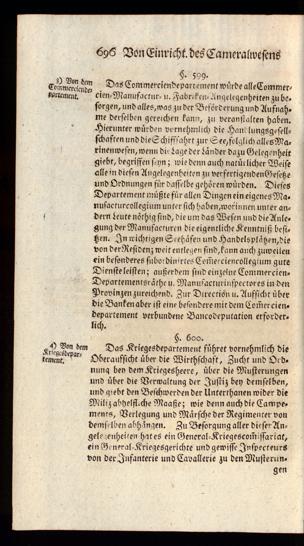 696 Von Einricht. des Cameralwesens
§. 599.
3) Von dem
Commerciende-
partement.
Das Commerciendepartement würde alle Commer-
cien- Manufactur- u. Fabriken-Angelegenheiten zu be-
sorgen, und alles, was zu der Beförderung und Aufnah-
me derselben gereichen kann, zu veranstalten haben.
Hierunter würden vornehmlich die Handlungsgesell-
schaften und die Schiffahrt zur See, folglich alles Ma-
rinenwesen, wenn die Lage der Länder dazu Gelegenheit
giebt, begriffen seyn; wie denn auch natürlicher Weise
alle in diesen Angelegenheiten zu verfertigenden Gesetze
und Ordnungen für dasselbe gehören würden. Dieses
Departement müßte für allen Dingen ein eignes Ma-
nufacturcollegium unter sich haben, worinnen unter an-
dern Leute nöthig sind, die um das Wesen und die Anle-
gung der Manufacturen die eigentliche Kenntniß besi-
tzen. In wichtigen Seehäfen und Handelsplätzen, die
von der Residenz weit entlegen sind, kann auch zuweilen
ein besonderes subordinirtes Commerciencollegium gute
Dienste leisten; außerdem sind einzelne Commercien-
Departementsräthe u. Manufacturinspectores in den
Provinzen zureichend. Zur Direction u. Aufsicht über
die Banken aber ist eine besondere mit dem Commercien-
departement verbundene Bancodeputation erforder-
lich.
§. 600.
4) Von dem
Kriegesdepar-
tement.
Das Kriegesdepartement führet vornehmlich die
Oberaufsicht über die Wirthschaft, Zucht und Ord-
nung bey dem Kriegesheere, über die Musterungen
und über die Verwaltung der Justiz bey demselben,
und giebt den Beschwerden der Unterthanen wider die
Miliz abhelfliche Maaße; wie denn auch die Campe-
ments, Verlegung und Märsche der Regimenter von
demselben abhängen. Zu Besorgung aller dieser An-
gelegenheiten hat es ein General-Kriegescommissariat,
ein General-Kriegesgerichte und gewisse Inspecteurs
von der Infanterie und Cavallerie zu den Musterun-
gen